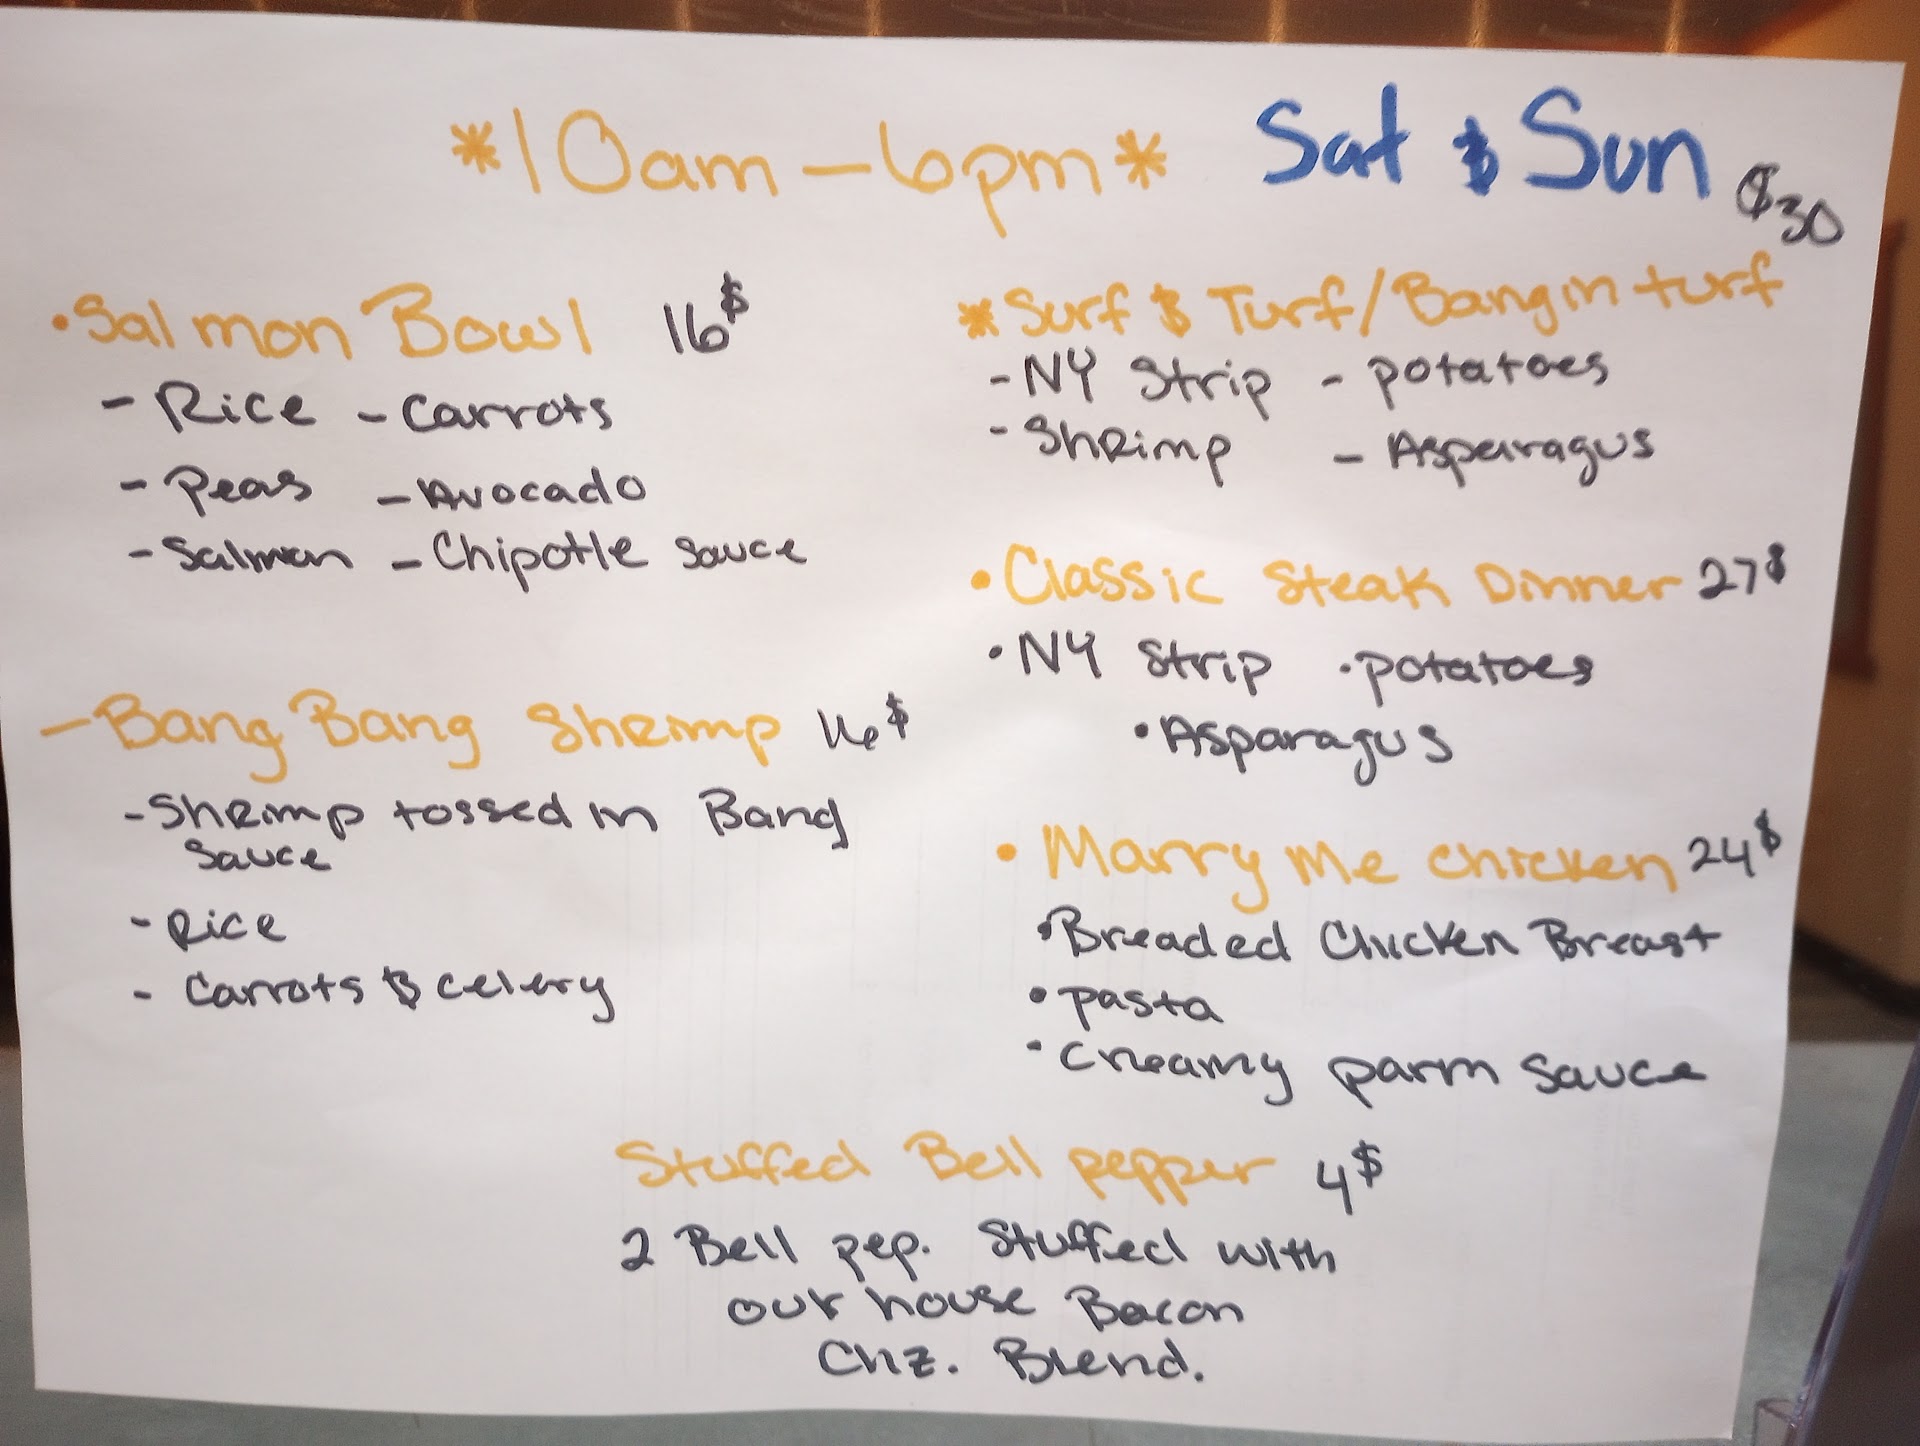 *10am - 6pm* Sat & Sun
$30
•Salmon Bowl 16$
- Rice - Carrots
- Peas - Avocado
- Salmon - Chipotle Sauce
- Bang Bang Shrimp 16$
- Shrimp tossed in Bang
Sauce
- Rice
- Carrots & celery
* Surf & Turf/Bangin turf
- NY Strip - potatoes
- Shrimp - Asparagus
• Classic Steak Dinner 27$
• NY Strip • potatoes
• Asparagus
• Marry Me Chicken 24$
• Breaded Chicken Breast
• pasta
• Creamy parm Sauce
Stuffed Bell pepper 4$
2 Bell pep. Stuffed with
our house Bacon
Chz. Blend.